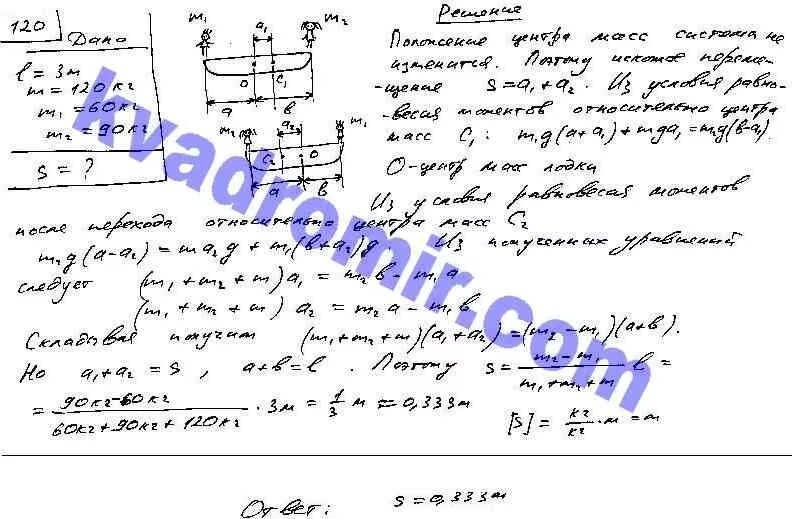 120
Дано
l = 3м
m = 120 кг
m₁ = 60 кг
m₂ = 90 кг
s = ?
m₁ a₁ m₂
O C₁
a b
m₂ a₂ m₁
C₂ O
a b
Решение
Положение центра масс системы не
изменится. Поэтому искомое переме-
щение s = a₁ + a₂. Из условия равно-
весия моментов относительно центра
масс C₁: m₁g(a+a₁) + mga₁ = m₂g(b-a₁)
O - центр масс лодки
Из условия равновесия моментов
после перехода относительно центра масс C₂
m₂g(a-a₂) = ma₂g + m₁(b+a₂)g Из полученных уравнений
следует (m₁ + m₂ + m) a₁ = m₂b - m₁a
(m₁ + m₂ + m) a₂ = m₂a - m₁b
Складывая получим (m₁ + m₂ + m)(a₁ + a₂) = (m₂ - m₁)(a+b).
Но a₁ + a₂ = s, a + b = l. Поэтому s = (m₂ - m₁)/(m₁ + m₂ + m) l =
= (90кг - 60кг)/(60кг + 90кг + 120кг) · 3м = 1/3 м = 0,333м [s] = кг/кг · м = м
Ответ: s = 0,333м
kvadromir.com